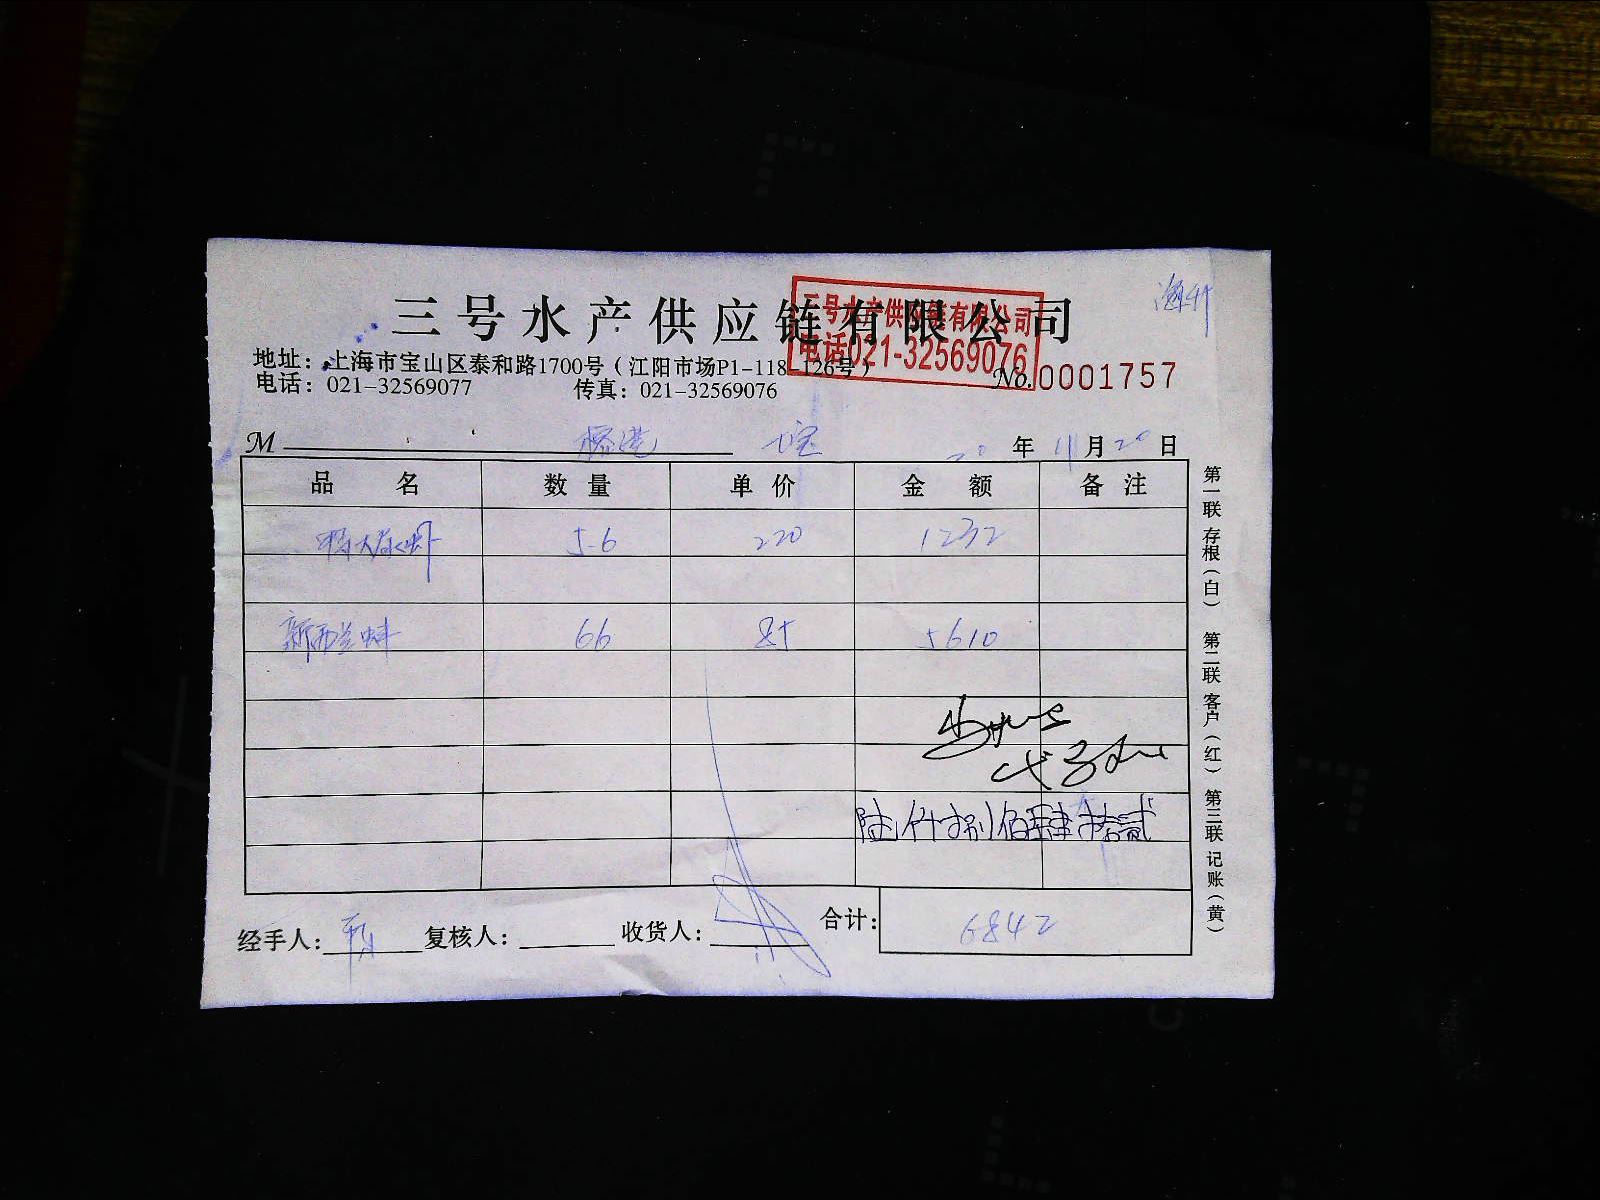 三号水产供应链有限公司
三号水产供应链有限公司
电话021-32569076
地址：上海市宝山区泰和路1700号（江阳市场P1-118-126号）
电话：021-32569077 传真：021-32569076
No.0001757
M 20年11月20日
品名 数量 单价 金额 备注
特大尿虾 5.6 220 1232
新西兰蚌 66 85 5610
陆仟捌佰肆拾贰
经手人： 复核人： 收货人： 合计： 6842
第一联 存根（白） 第二联 客户（红） 第三联 记账（黄）